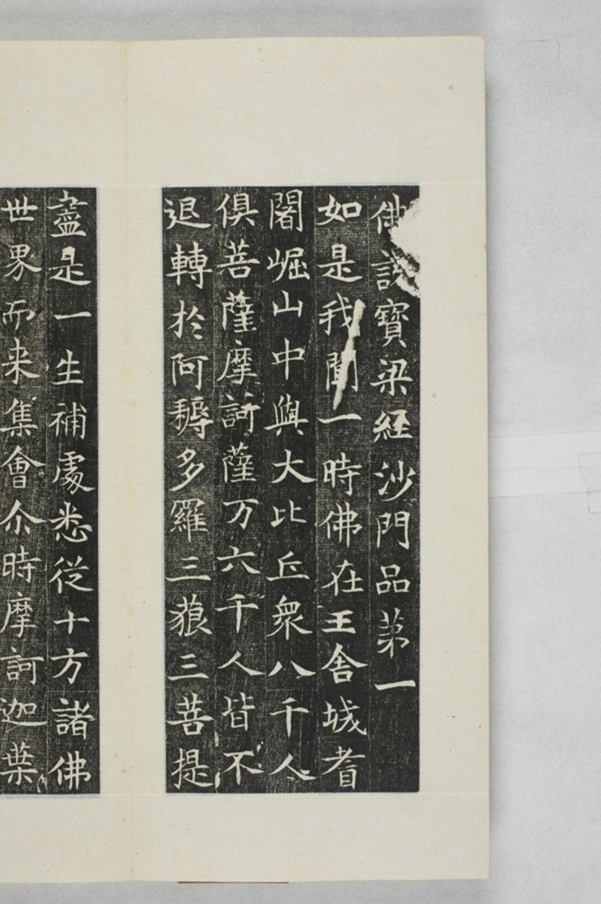 佛說寶梁經沙門品苐一
如是我聞一時佛在王舍城耆
闍崛山中與大比丘衆八千人
俱菩薩摩訶薩万六千人皆不
退轉於阿耨多羅三藐三菩提
盡是一生補處悉從十方諸佛
世界而来集會尒時摩訶迦葉